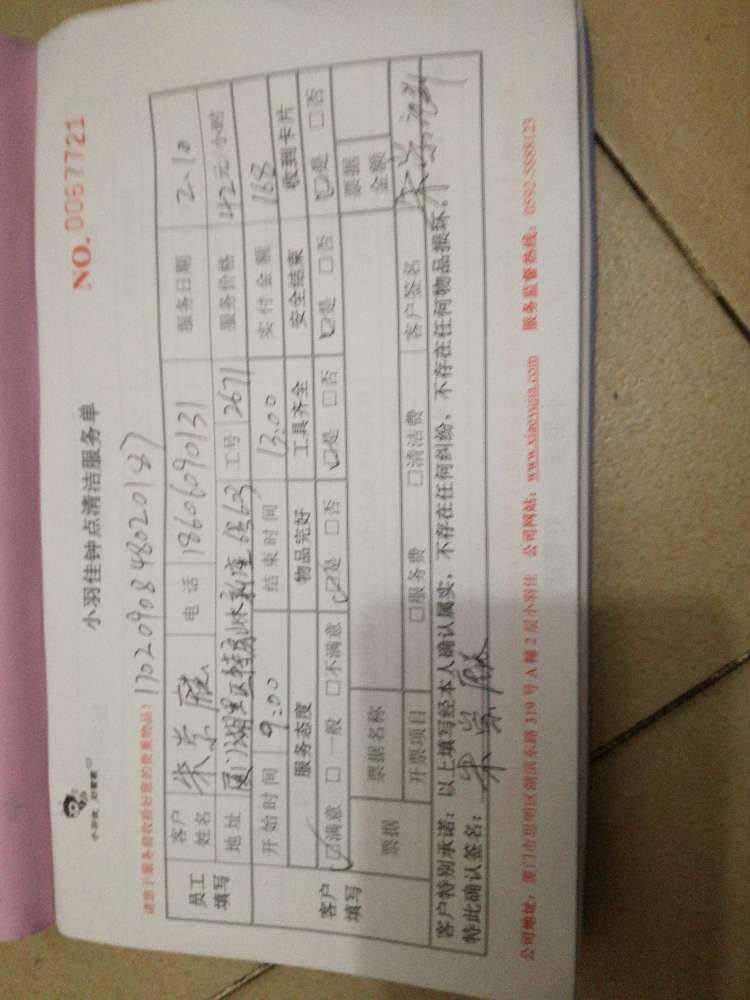 小羽佳钟点清洁服务单
NO. 0057721
请您于服务前收拾好您的贵重物品! 1702090848020187
员工填写
客户姓名 朱 电话 18606090131 服务日期 2.10
地址 厦门湖里区 工号 2671 服务价格 42元/小时
开始时间 9:00 结束时间 13:00 实付金额 168
客户填写
服务态度 物品完好 工具齐全 安全结束 收到卡片
☑满意 □一般 □不满意 ☑是 □否 ☑是 □否 ☑是 □否 ☑是 □否
票据 票据名称 票据金额
开票项目 □服务费 □清洁费 客户签名
客户特别承诺:以上填写经本人确认属实,不存在任何纠纷,不存在任何物品损坏。
特此确认签名:
公司地址:厦门市思明区湖滨东路319号A幢2层小羽佳 公司网站:www.xiaoyujia.com 服务监督热线:0592-5888123